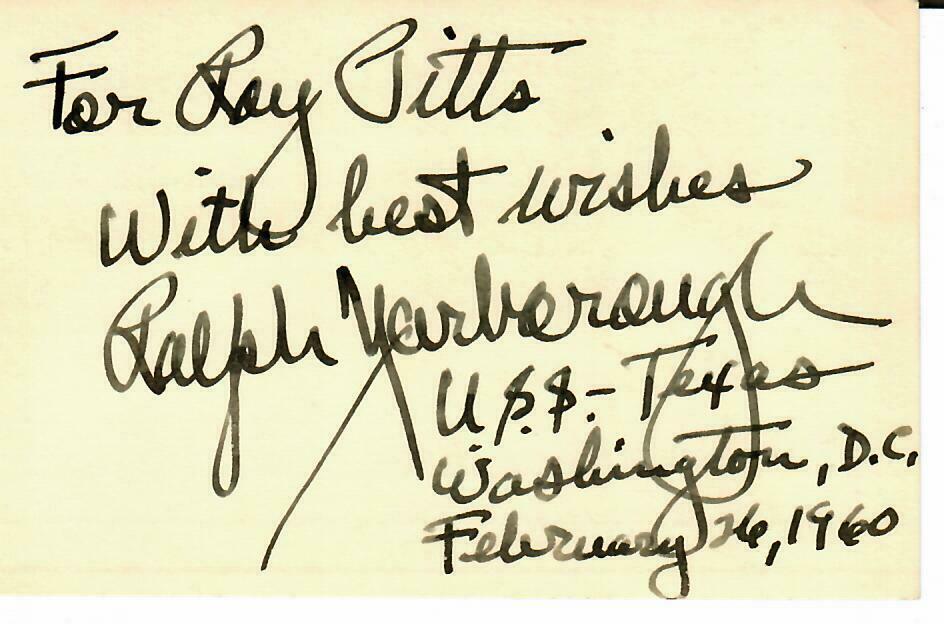 For Ray Pitts
With best wishes
Ralph Yarborough
U.S.S.- Texas
Washington, D.C.
February 26, 1960